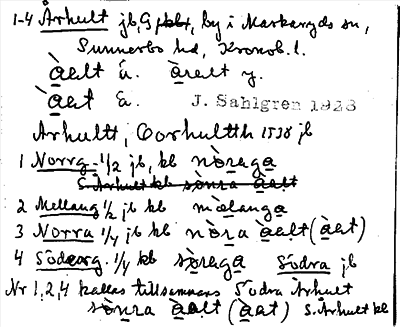 1-4 Århult jb, G kbr, by i Markaryds sn,
Sunnerbo hd, Kronob. l.
àalt ä. àralt y.
àat ä. J. Sahlgren 1923
Arhultt, Oorhultth 1538 jb
1 Norrg. 1/2 jb, kb nòraga
S. Århult kb sònra àalt
2 Mellang 1/2 jb kb mèlanga
3 Norra 1/4 jb, kb nòra àalt (àat)
4 Söderg. 1/4 kb sòraga Södra jb
Nr 1, 2, 4 kallas tillsammans Södra Århult
sònra àalt (àat) S. Århult kb